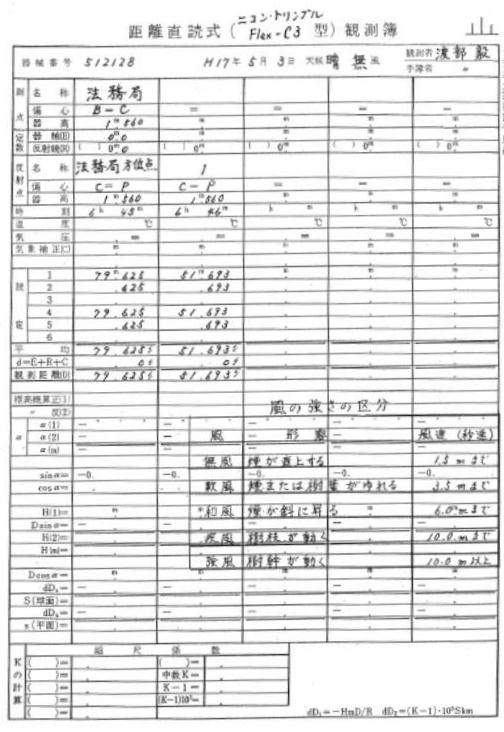 ニコン・トリンブル
距離直読式(Flex-C3 型)観測簿
器械番号 512128 H17年5月3日 天候 晴 無風 観測者 渡部 毅
手簿者 〃
測点 名称 法務局
偏心 B=C = = = =
器高 1m560
定数 器械(E) 0m0
反射鏡(R) ( ) 0m ( ) 0m ( ) 0m ( ) 0m ( ) 0m
反射点 名称 法務局方位点 1
偏心 C=P C=P = = =
器高 1m560 1m560
時刻 6h 45m 6h 46m h m h m h m
温度 ℃ ℃ ℃ ℃ ℃
気圧 mm mm mm mm mm
気象補正(C) m m m m m
読定 1 79m.625 51m.693
2 .625 .693
3
4 79.625 51.693
5 .625 .693
6
平均 79.625 51.693
d=E+R+C
観測距離(D) 79.625 51.693
標高概算正(1)
〃 反(2)
風の強さの区分
α α(1)
α(2)
α(m)
風 形態 風速(秒速)
無風 煙が直上する 1.5mまで
sinα= -0. -0. -0. -0. -0.
軟風 煙または樹葉がゆれる 3.5mまで
cosα=
H(1)= 和風 煙が斜に昇る 6.0mまで
D sinα=
H(2)= 疾風 樹枝が動く 10.0mまで
H(m)= 強風 樹幹が動く 10.0m以上
D cosα=
dD₁=
S(球面)=
dD₂=
s(平面)=
Kの計算 縮尺係数
( )= ( )=
( )= 中数K=
( )= K-1=
( )= (K-1)10⁵=
( )=
dD₁=-HmD/R dD₂=(K-1)·10⁵Skm